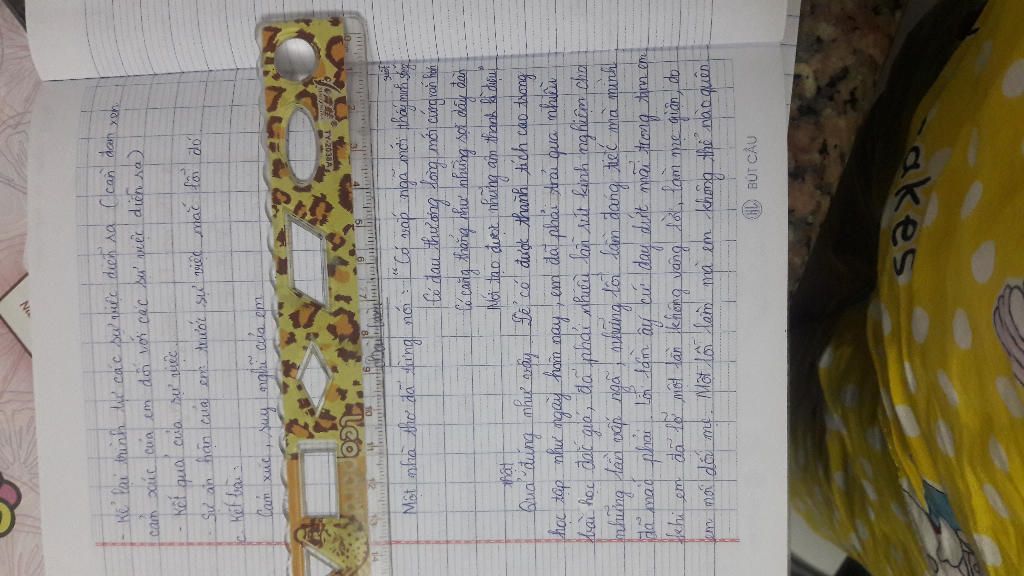 - Kể lại trình tự các sự việc diễn ra (can đan xen
cảm xúc của em đối với các sự việc diễn ra)
- Kết quả của sự việc
Sự ân hận của em trước sự việc mắc lỗi đó.
c. Kết bài:
Cảm xúc, suy nghĩ của em
Một nhà thơ đã từng nói: "Có vấp ngã mới thấy mình
Có đau thương lòng mới cứng cỏi hơn
Có căng thẳng như những sợi dây đàn
Mới tạo được những âm thanh kì diệu"
Quả thật đúng như vậy. Để có được thành tích cao trong
học tập như ngày hôm nay, em đã phải trải qua nhiều
bài học đắt giá, đã phải nhiều lần rút kinh nghiệm cho
những lần vấp ngã, những lỗi lầm đáng tiếc mà mình
đã mắc phải. Lỗi lầm ấy cứ day dứt mãi trong tâm em
khi em đã lỡ một lần không vâng lời, làm mẹ giận, do
em nói dối mẹ. Một lỗi lầm mà em không thể nào quên
BÚT CÂU
akes